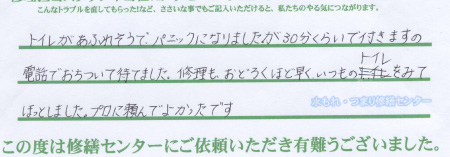 こんなトラブルを直してもらった!など、ささいな事でもご記入いただけると、私たちのやる気につながります。
トイレがあふれそうで、パニックになりましたが30分くらいで付きますの
電話でおちついて待てました。修理も、おどろくほど早く、いつものトイレをみて
ほっとしました。プロに頼んでよかったです
水もれ・つまり修繕センター
この度は修繕センターにご依頼いただき有難うございました。